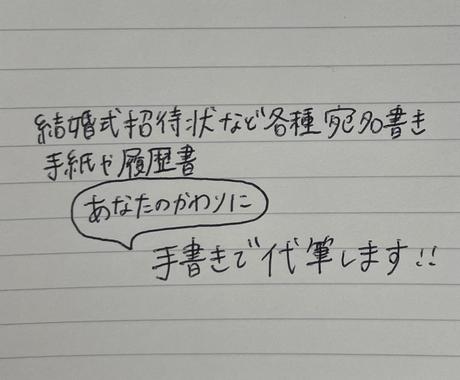 結婚式招待状など各種宛名書き
手紙や履歴書
あなたのかわりに
手書きで代筆します!!